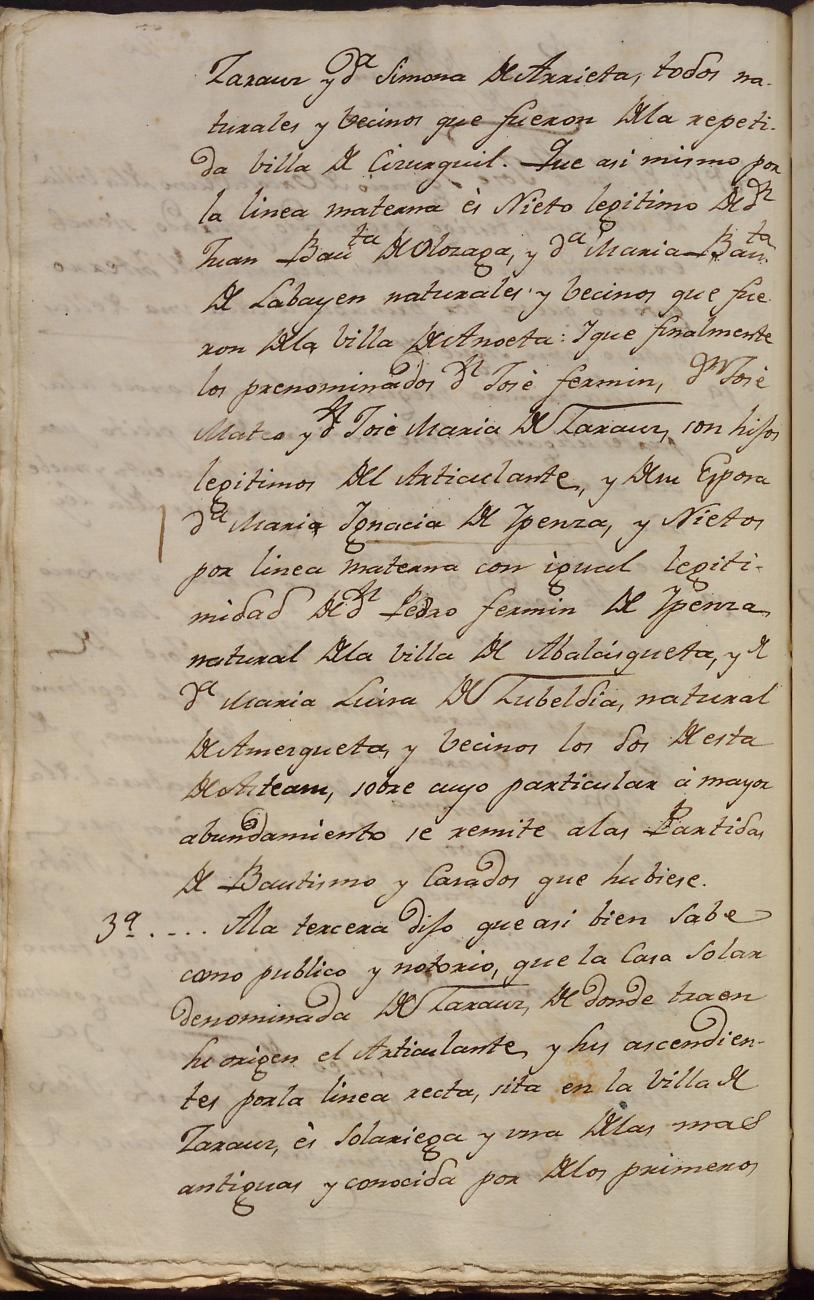 Zarauz y dª Simona De Arrieta, todos na-
turales y becinos que fueron Dela repeti-
da billa De Cizurquil. Que asi mismo por
la linea materna ès Nieto legitimo De dn
Juan Bauta De Olozaga, y dª Maria Bauta
De Labayen naturales y becinos que fue-
ron Dela billa De Anoeta: Y que finalmente
los prenominados dn Josè fermin, dn Josè
Mateo y dn Josè Maria De Zarauz, son hijos
legitimos Del Articulante, y Desu Esposa
dª Maria Ygnacia De Ypenza, y Nietos
por linea materna con igual legiti-
midad De dn Pedro fermin De Ypenza
natural Dela billa De Abalcisqueta, y De
dª Maria Luisa De Zubeldia, natural
De Amezqueta, y becinos los dos De esta
De Asteasu, sobre cuyo particular à mayor
abundamiento se remite alas Partidas
De Bautismo y Casados que hubiese.
3ª .... Ala tercera dijo que asi bien Sabe
como publico y notorio, que la Casa Solar
denominada De Zarauz, De donde traen
su origen el Articulante, y sus ascendien-
tes porla linea recta, sita en la billa De
Zarauz, ès Solariega y una Delas mas
antiguas y conocida por Delos primeros